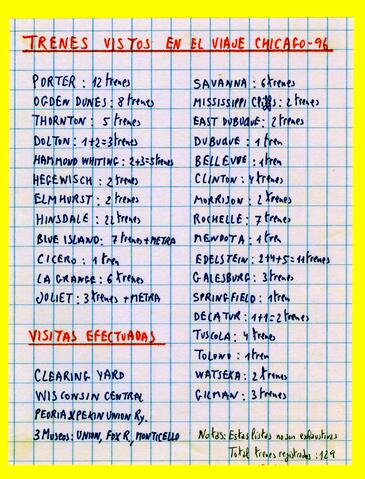 TRENES VISTOS EN EL VIAJE CHICAGO-96
PORTER: 12 trenes
OGDEN DUNES: 8 trenes
THORNTON: 5 trenes
DOLTON: 1+2=3 trenes
HAMMOND WHITING: 2+3=5 trenes
HEGEWISCH: 2 trenes
ELMHURST: 2 trenes
HINSDALE: 22 trenes
BLUE ISLAND: 7 trenes+METRA
CICERO: 1 tren
LA GRANGE: 6 trenes
JOLIET: 3 trenes+METRA
VISITAS EFECTUADAS
CLEARING YARD
WISCONSIN CENTRAL
PEORIA & PEKIN UNION Ry.
3 Museos: UNION, FOX R, MONTICELLO
SAVANNA: 6 trenes
MISSISSIPPI Cliffs: 2 trenes
EAST DUBUQUE: 2 trenes
DUBUQUE: 1 tren
BELLEVUE: 1 tren
CLINTON: 4 trenes
MORRISON: 2 trenes
ROCHELLE: 7 trenes
MENDOTA: 1 tren
EDELSTEIN: 2+4+5=11 trenes
GALESBURG: 3 trenes
SPRINGFIELD: 1 tren
DECATUR: 1+1=2 trenes
TUSCOLA: 4 trenes
TOLONO: 1 tren
WATSEKA: 2 trenes
GILMAN: 3 trenes
Notas: Estas listas no son exhaustivas
Total trenes registrados: 129